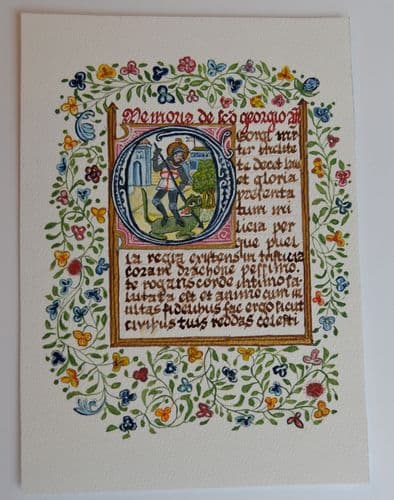 Memoria de sco georgio
G eorgi mar
tir inclite
te decet laus
et gloria
presenta
tum mi
licia per
que puel
la regia existens in tristicia
coram drachone pessimo
te rogans corde intimo sa
luata est et animo cum m
ultas fidelibus fac ergo sicut
ciuibus tuis reddas celesti